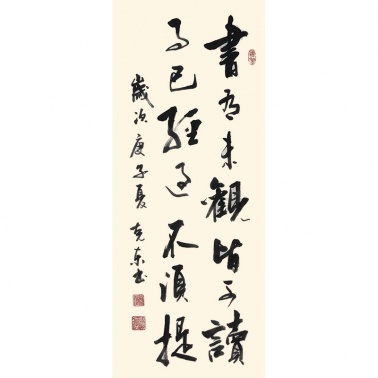 書有未觀皆可讀
事已經過不須提
歲次庚子夏克東書